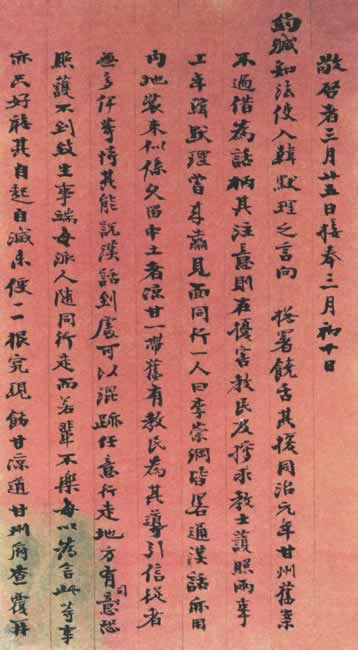 敬啓者三月廿五日接奉三月初十日
鈞緘知法使入韓默理之言向 總署饒舌其援同治元年甘州舊案
不過借為話柄其注意則在害教民及求教士護照兩事
上年韓默理曾來肅見面同行一人曰李崇綱皆畧通漢話亦用
內地裝束似係久留中土者涼甘一帶舊有教民為其導引信從者
無多等恃其能說漢話到處可以混跡任意行走地方有司意恐
照護不到致生事端每派人隨同行走而若輩不樂每以為言此等事
亦只好聽其自起自滅未便一一根究現飭甘涼道甘州府查覆再